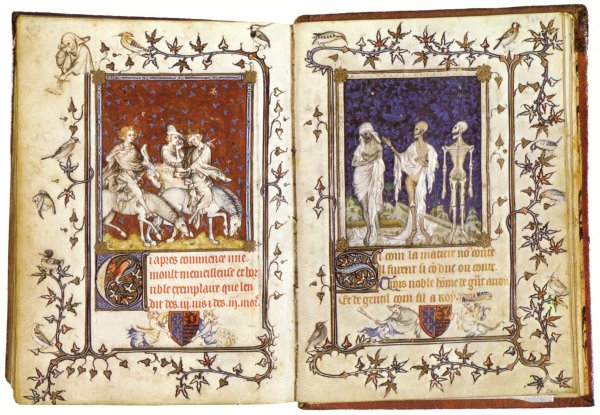 Ciapres commence une
moult merueilleuse et hor
rible exemplaire que len
dit des .iij. uis t des .iij. mor.
Si com la matiere nō conte
Il furent si cō duc ou conte
noble hōme de arroy
Et de gentil com fil a Roy.